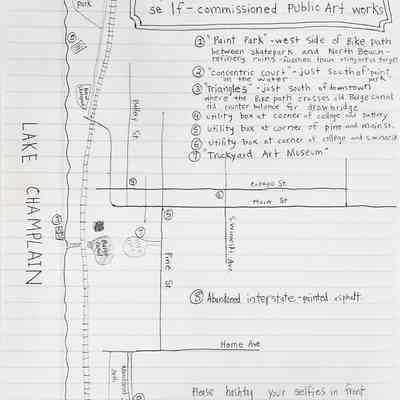 Park
self-commissioned Public Art works
① "Paint Park" - west side of Bike path
between skatepark and North Beach-
refinery ruins
② "concentric court" - just south of "point
on the water park"
③ "Triangles" - just south of downtown
where the Bike path crosses old Barge canal
old counter balance for drawbridge
④ utility box at corner of college and battery
⑤ utility box at corner of pine and main st.
⑥ utility box at corner of college and S. winooski
⑦ "Truckyard Art Museum"
Battery St
LAKE CHAMPLAIN
④
⑥
College St
Main St
⑤
S. Winooski Ave
③
Barge canal
⑦
Pine St
⑧ Abandoned interstate - painted asphalt.
Home Ave
Abandoned
Please hashtag your selfies in front